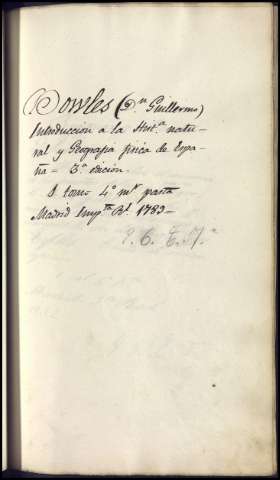 Bowles (Dn Guillermo)
Introduccion a la Hist.a natu-
ral y Geografia fisica de Espa-
ña - 3.a edicion.
1 tomo 4º mr pasta
Madrid Impta Rl. 1789-